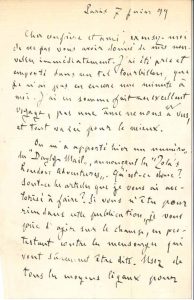 Paris 7 juin 99
Cher confrère et ami, excusez-moi
de ne pas vous avoir donné de mes nou-
velles immédiatement. J'ai été pris et
emporté dans un tel tourbillon, que
je n'ai pas eu encore une minute à
moi. J'ai en somme fait un excellent
voyage, pas une âme ne nous a vus,
et tout va ici pour le mieux.
On m'a apporté hier un numéro
du "Daily Mail", annonçant les "Zola's
London Adventures". Qu'est-ce donc?
Sont-ce les articles que je vous ai au-
torisé à faire? Si vous n'êtes pour
rien dans cette publication, je vous
prie d'agir sur le champ, en pro-
testant contre les mensonges qui
vont sans doute être dits. Usez de
tous les moyens légaux pour